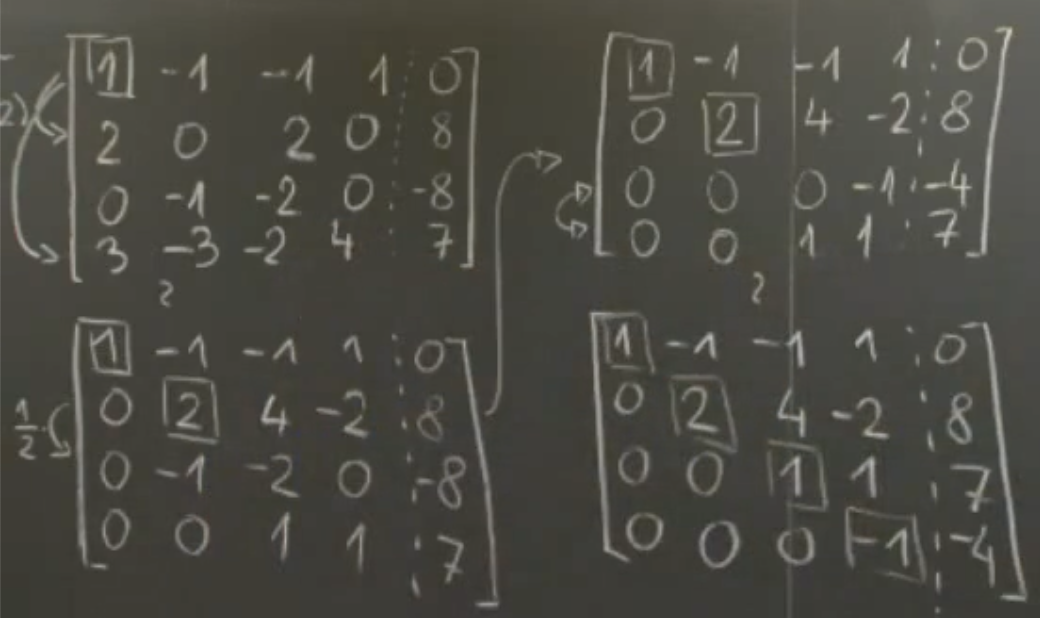 1 -1 -1 1 0
2 0 2 0 8
0 -1 -2 0 -8
3 -3 -2 4 7
1 -1 -1 1 0
0 2 4 -2 8
1/2 0 -1 -2 0 -8
0 0 1 1 7
1 -1 -1 1 : 0
0 2 4 -2 8
0 0 0 -1 -4
0 0 1 1 7
1 -1 -1 1 0
0 2 4 -2 8
0 0 1 1 7
0 0 0 -1 -4